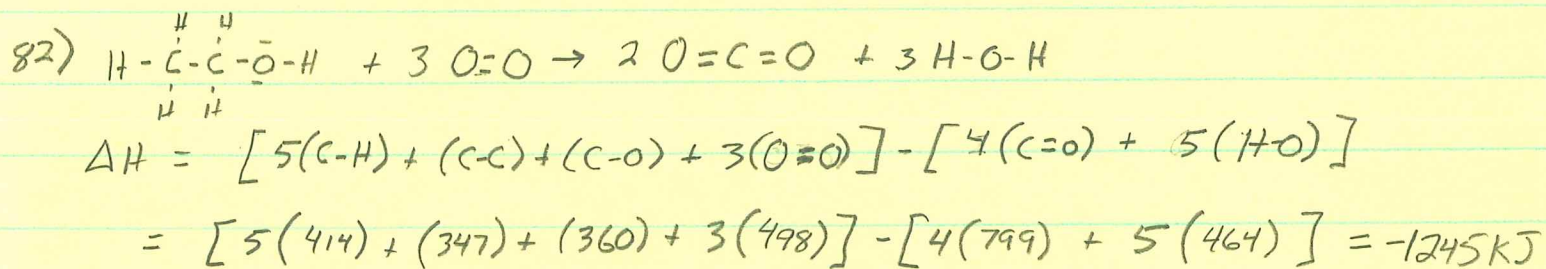 H H
82) H-C-C-O-H + 3 O=O → 2 O=C=O + 3 H-O-H
H H
ΔH = [5(C-H) + (C-C) + (C-O) + 3(O=O)] - [4(C=O) + 5(H-O)]
= [5(414) + (347) + (360) + 3(498)] - [4(799) + 5(464)] = -1245 KJ